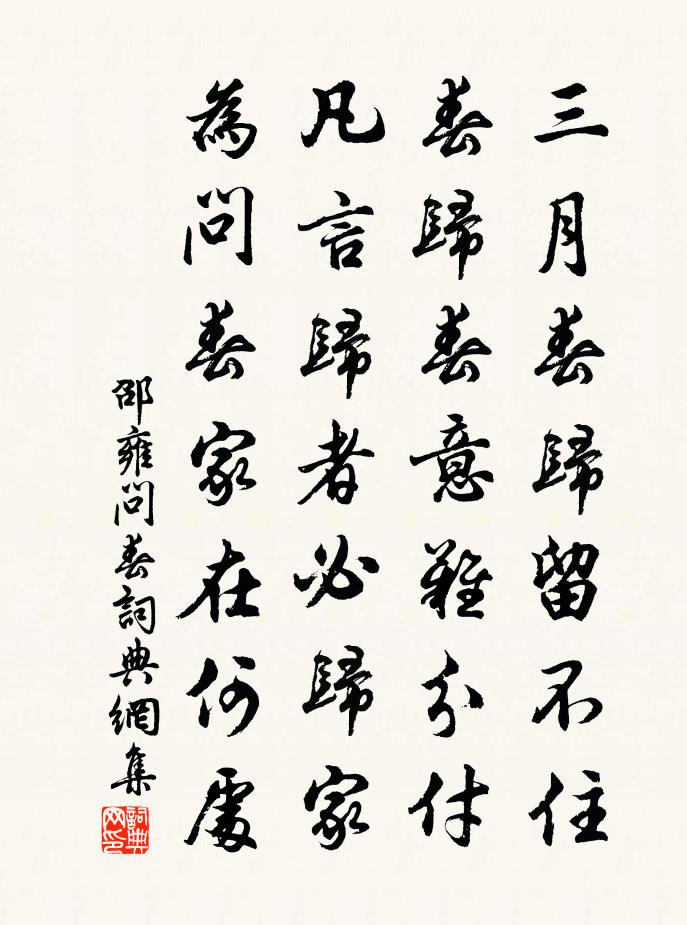 三月春歸留不住
春歸春意難分付
凡言歸者必歸家
為問春家在何處
邵雍問春詞典網集
詞典網印